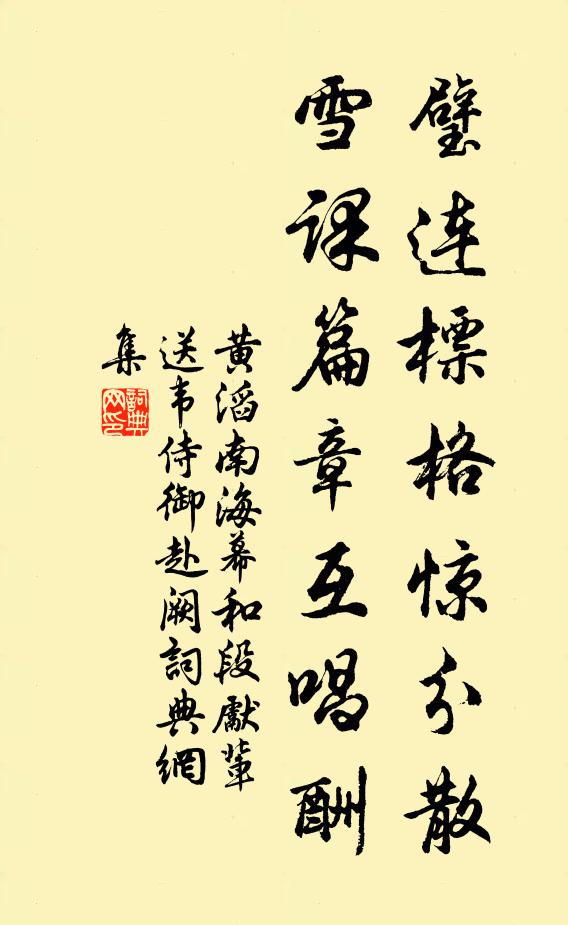 璧连標格惊分散
雪课篇章互唱酬
黄滔南海幕和段獻輩
送韦侍御赴阙詞典網
集
詞典
网印